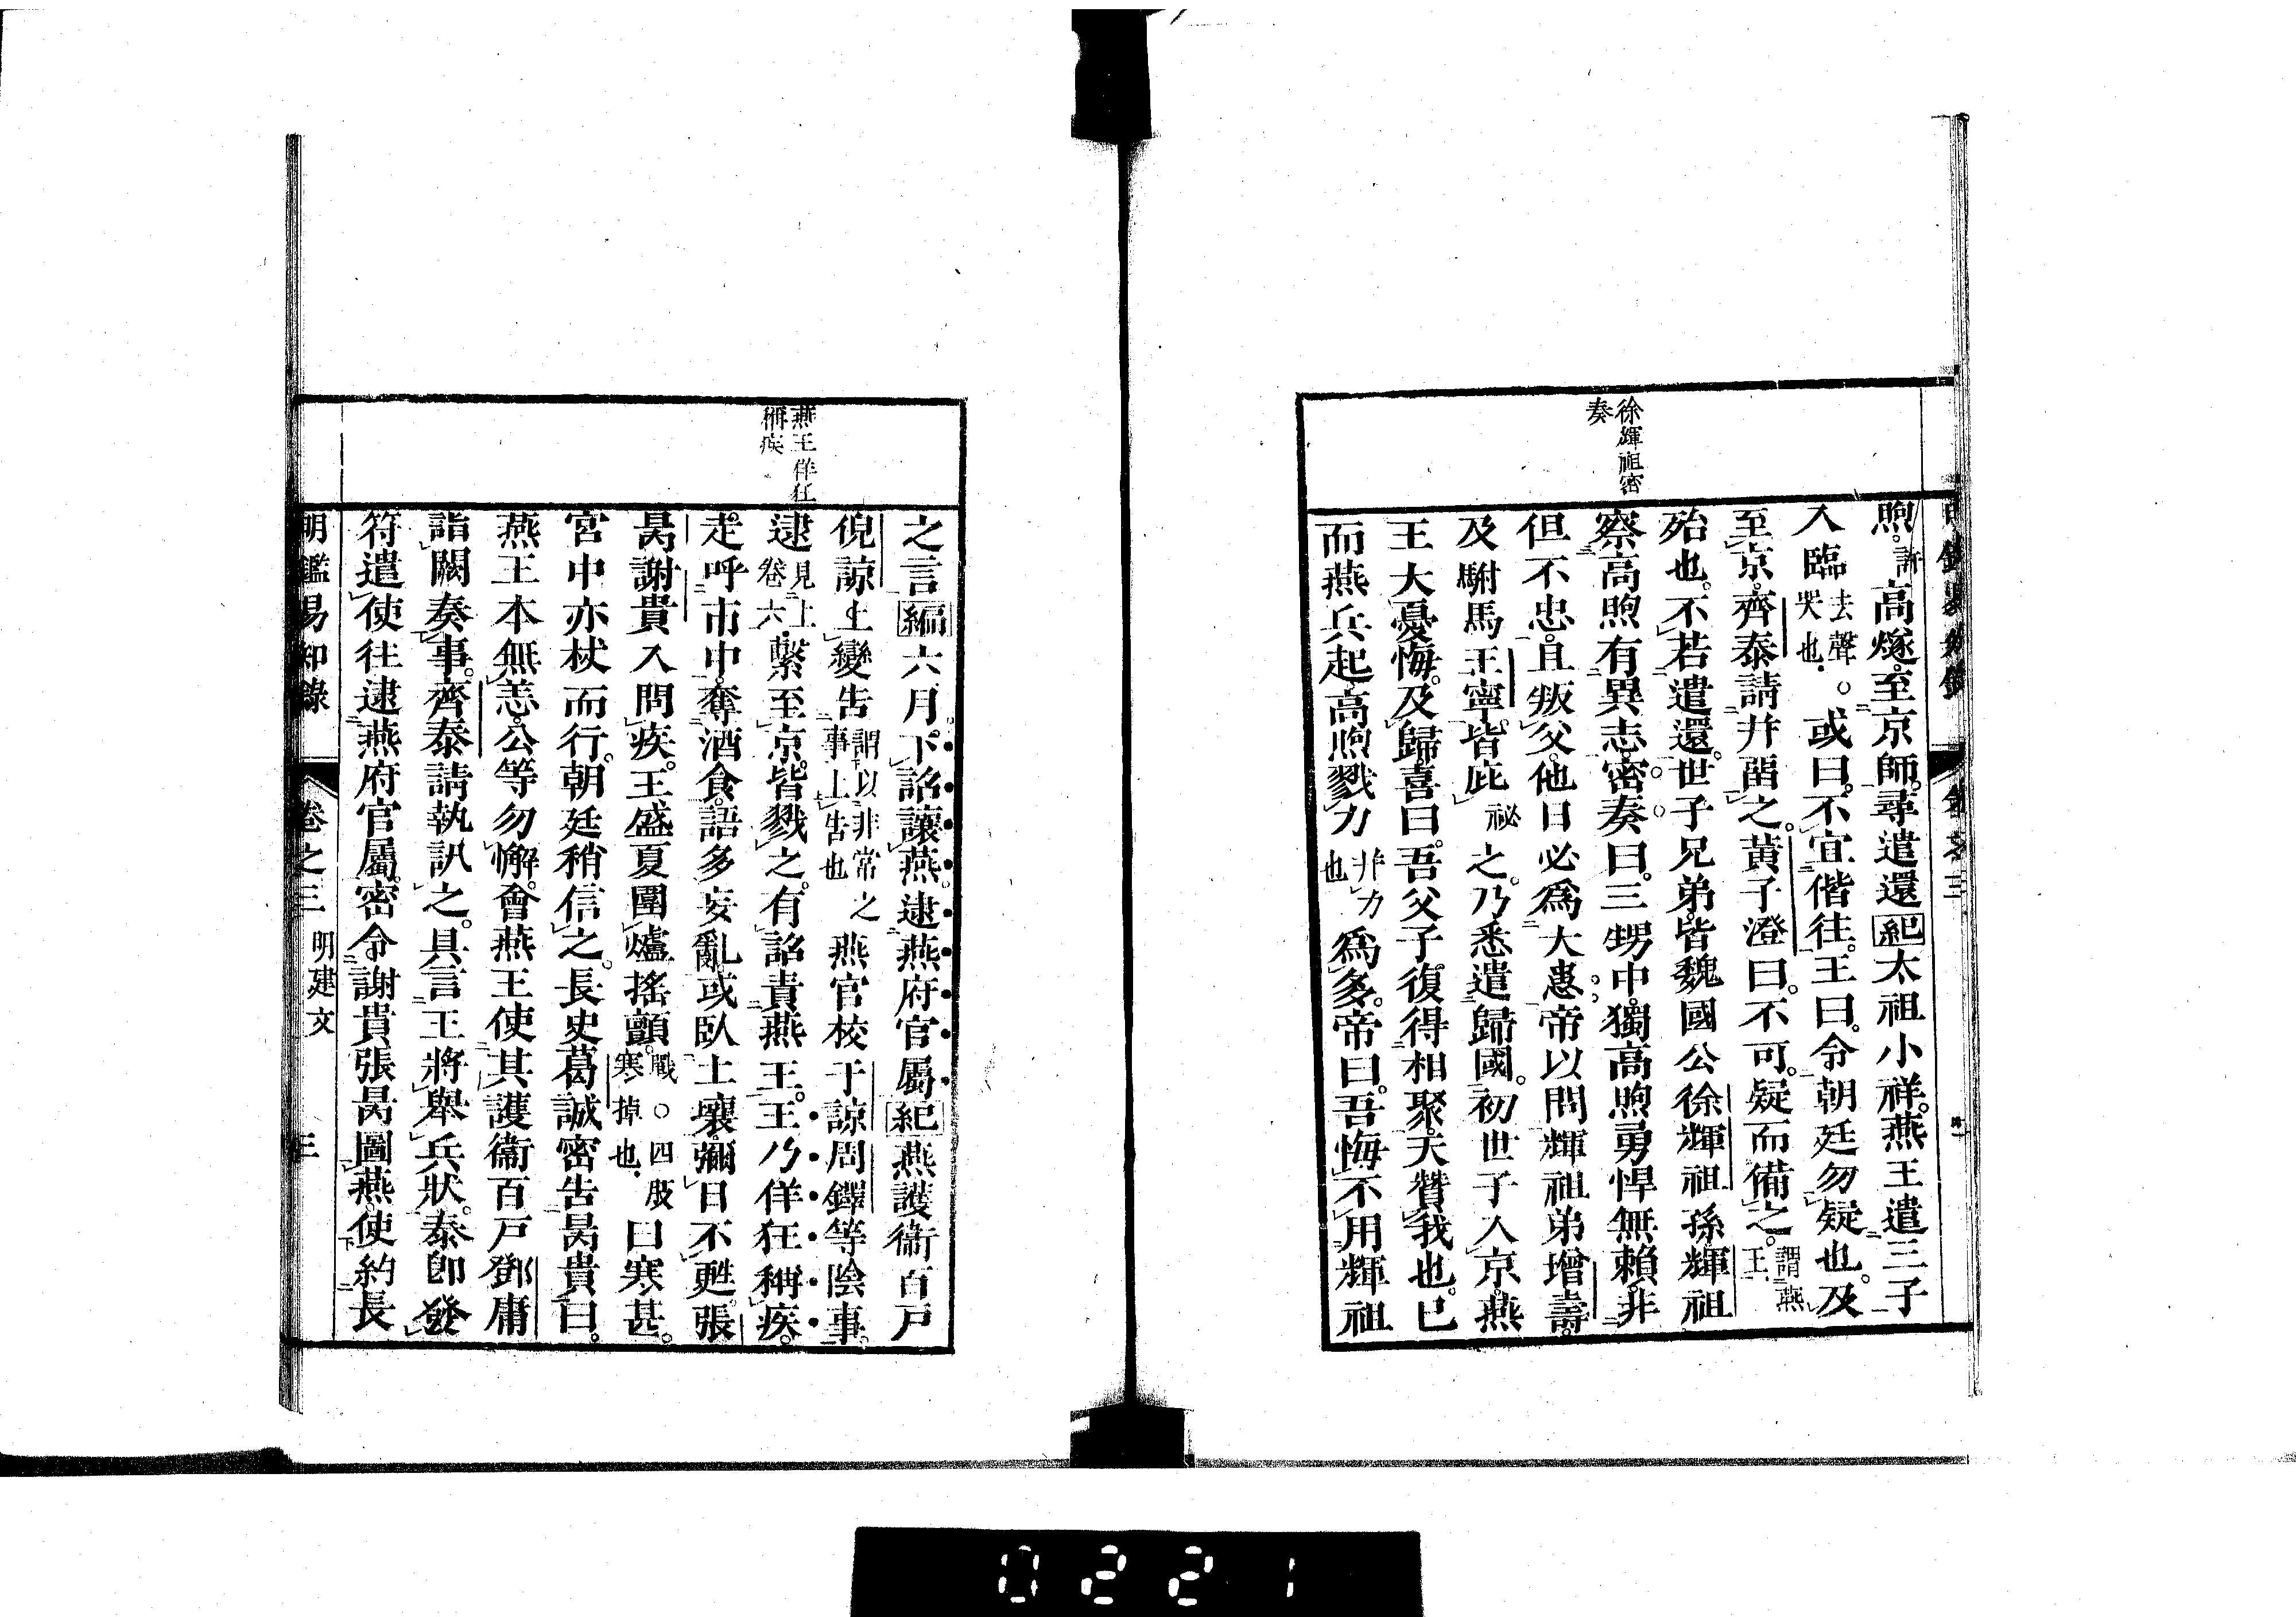 徐輝祖密
奏
煦許高燧至京師尋遣還紀太祖小祥燕王遣三子
入臨去聲哭也○或曰不宜偕往王曰令朝廷勿疑也及
至京齊泰請幷畱之黃子澄曰不可疑而備之謂燕王
殆也不若遣還世子兄弟皆魏國公徐輝祖甥輝祖
察高煦有異志密奏曰三甥中獨高煦勇悍無賴非
但不忠且叛父他日必爲大患帝以問輝祖弟增壽
及駙馬王寧皆庇祕之乃悉遣歸國初世子入京燕
王大憂悔及歸喜曰吾父子復得相聚天贊我也已
而燕兵起高煦戮力幷力也爲多帝曰吾悔不用輝祖
燕王佯狂
稱疾
之言編六月下詔讓燕逮燕府官屬紀燕護衞百戶
倪諒上變告謂以非常之事上告也燕官校于諒周鐸等陰事
逮見上卷六繫至京皆戮之有詔責燕王王乃佯狂稱疾
走呼市中奪酒食語多妄亂或臥土壤彌日不甦張
昺謝貴入問疾王盛夏圍爐搖顫戰○四肢寒掉也曰寒甚
宮中亦杖而行朝廷稍信之長史葛誠密告昺貴曰
燕王本無恙公等勿懈會燕王使其護衞百戶鄧庸
詣闕奏事齊泰請執訊之具言王將舉兵狀泰卽發
符遣使往逮燕府官屬密令謝貴張昺圖燕使約長
明鑑易知錄 卷之三 明建文 三
0221